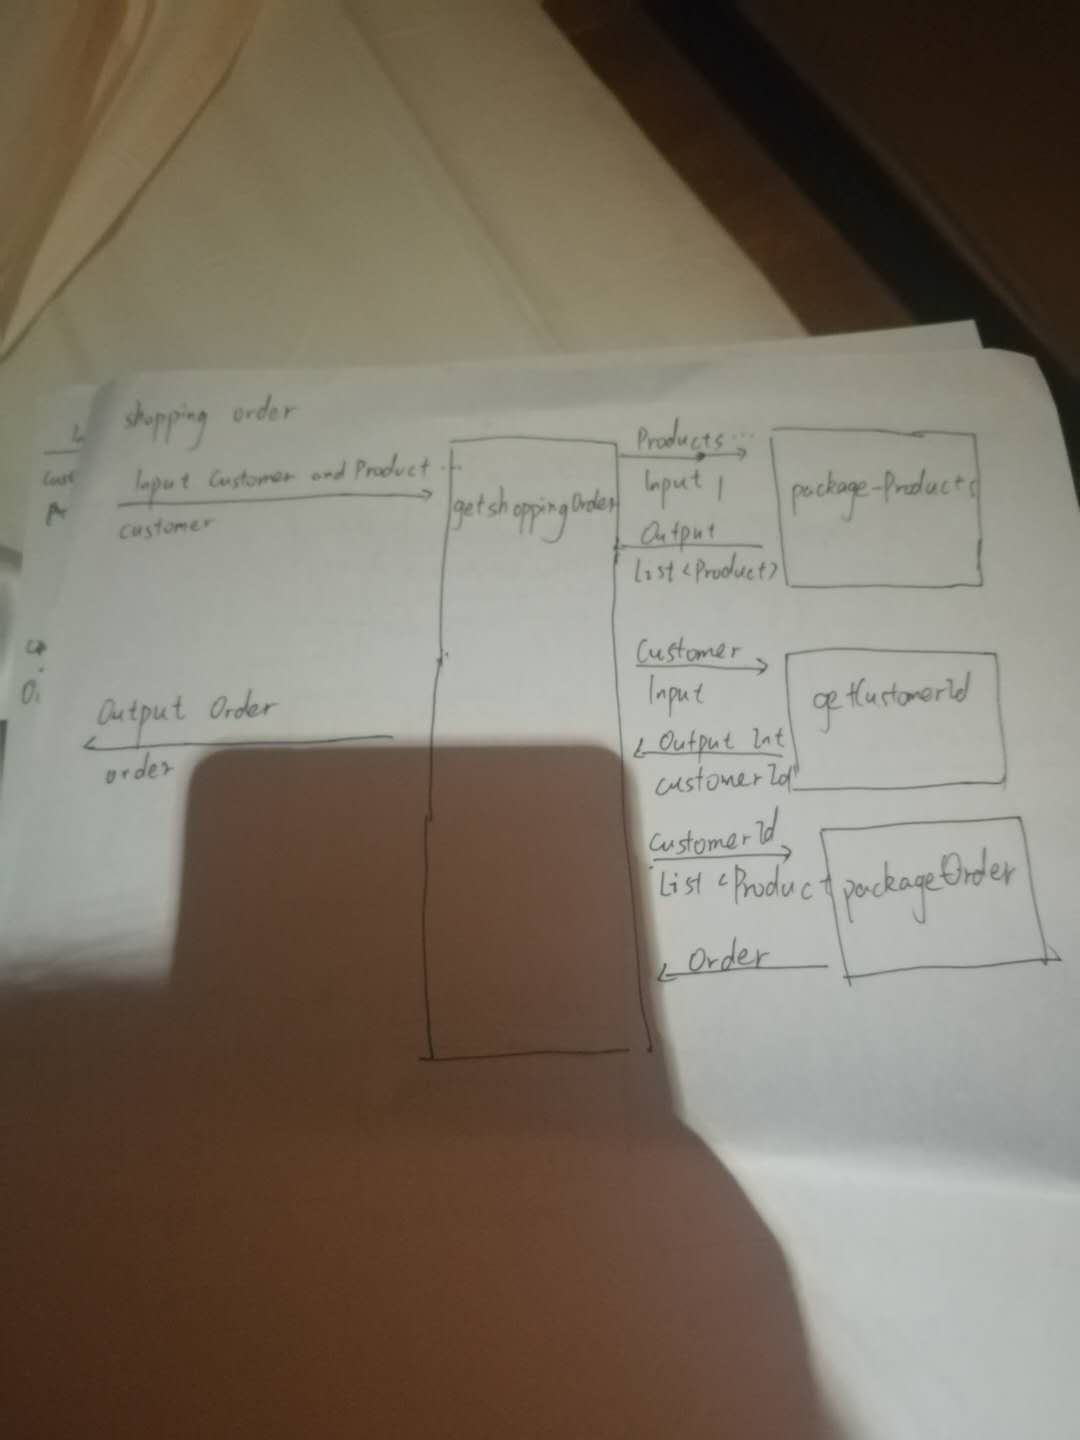 shopping order
Input Customer and Product ...
customer
getshoppingOrder
Output Order
order
Products ...
Input
Output
List <Product>
package-Products
Customer
Input
Output Int
customerId
getCustomerId
CustomerId
List <Product
packageOrder
Order